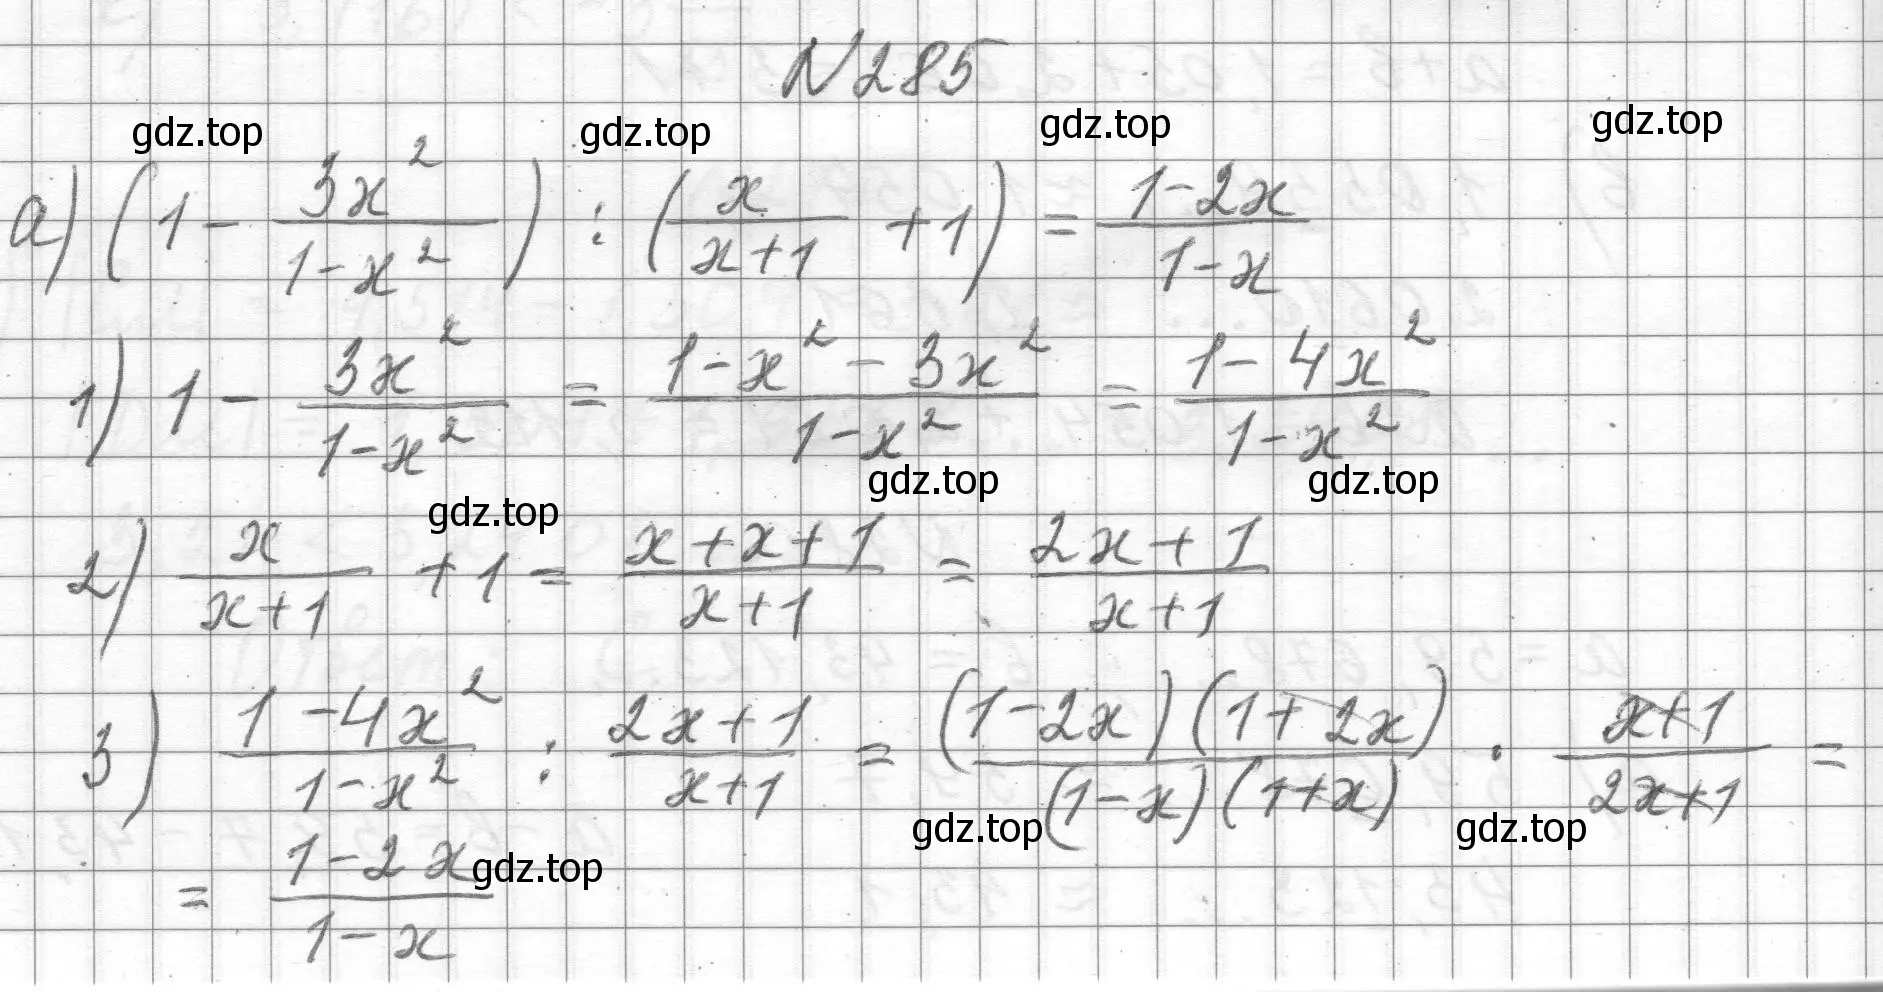 N285
gdz.top gdz.top gdz.top gdz.top
а) (1 - 3x²/(1-x²)) : (x/(x+1) + 1) = (1-2x)/(1-x)
1) 1 - 3x²/(1-x²) = (1-x²-3x²)/(1-x²) = (1-4x²)/(1-x²)
gdz.top gdz.top gdz.top
2) x/(x+1) + 1 = (x+x+1)/(x+1) = (2x+1)/(x+1)
3) (1-4x²)/(1-x²) : (2x+1)/(x+1) = (1-2x)(1+2x)/(1-x)(1+x) · (x+1)/(2x+1) =
gdz.top gdz.top
= (1-2x)/(1-x) gdz.top